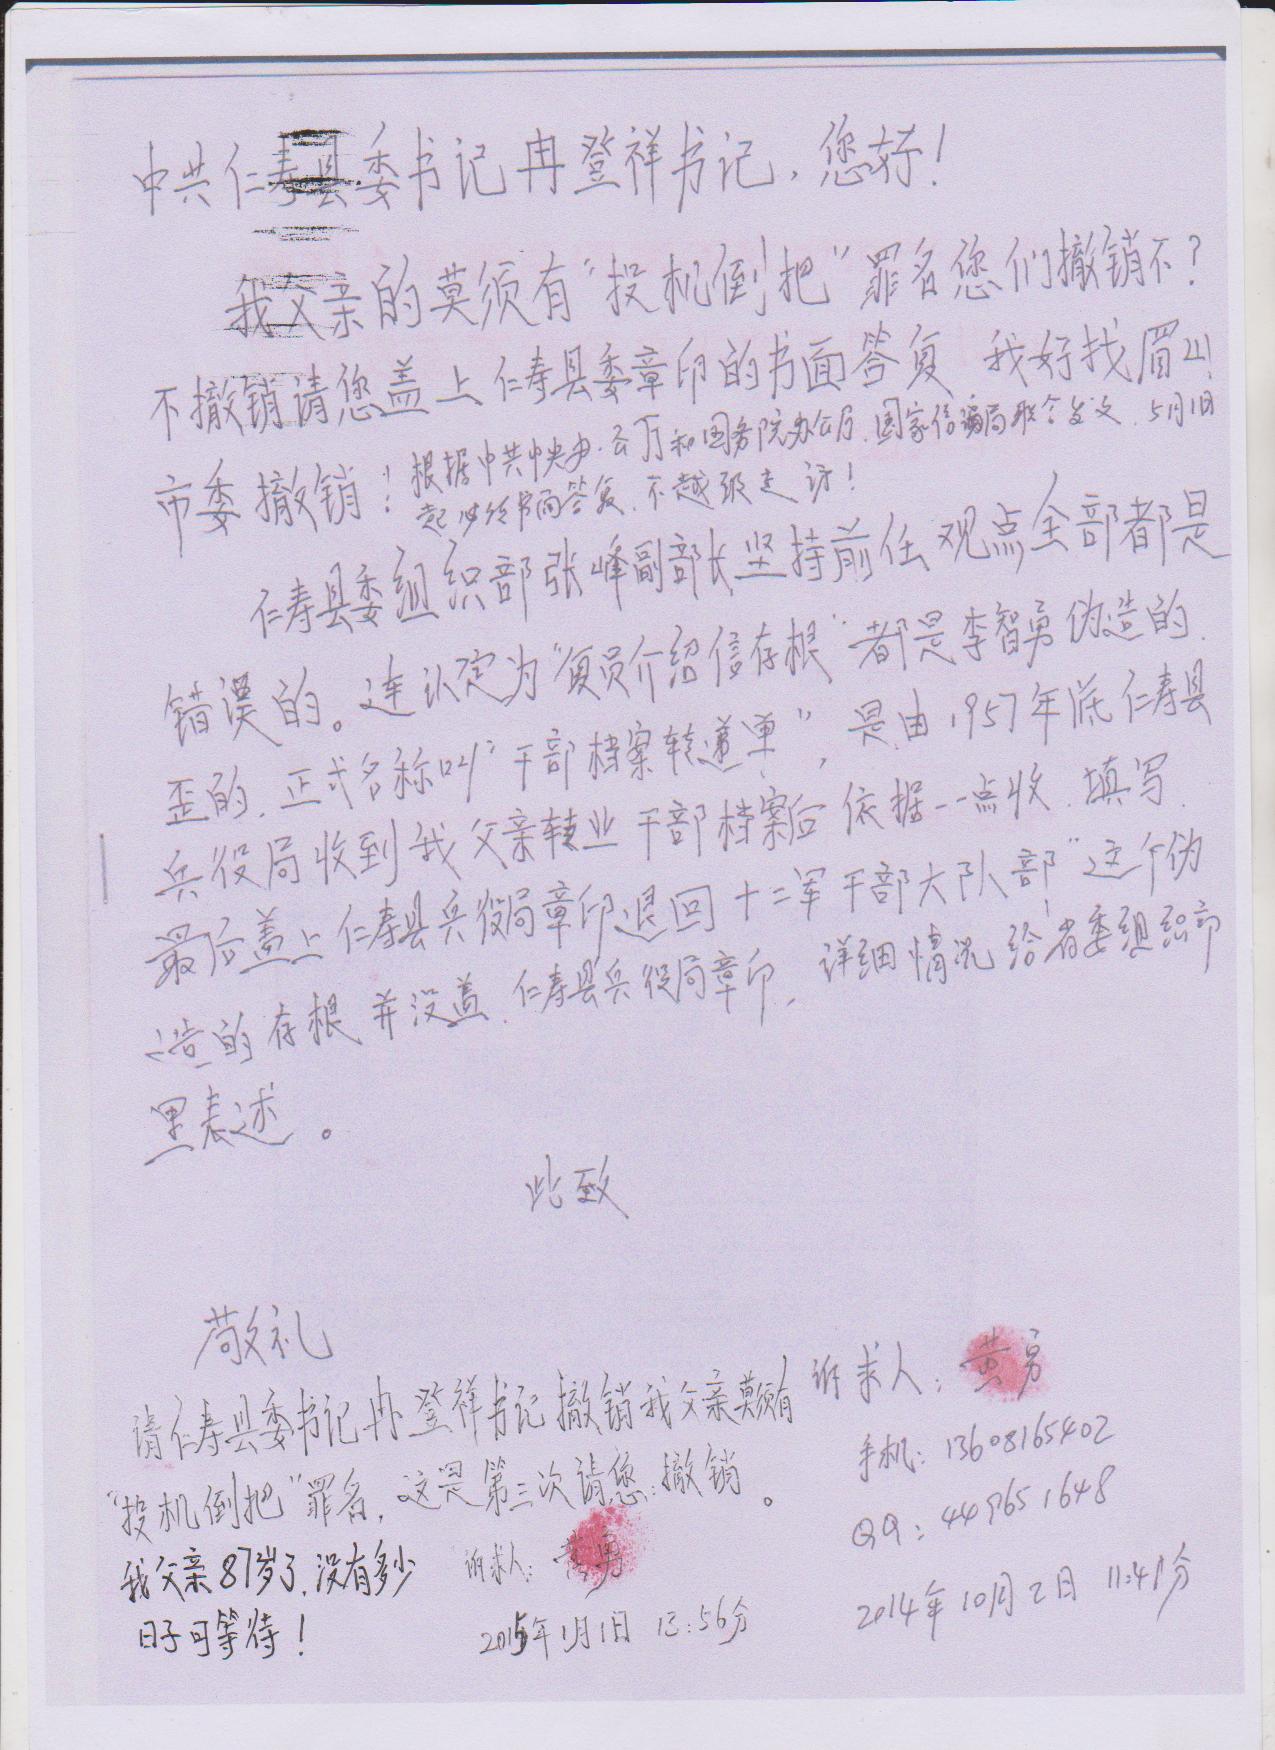 中共仁寿县委书记冉登祥书记，您好！
我父亲的莫须有“投机倒把”罪名您们撤销不？
不撤销请您盖上仁寿县委章印的书面答复 我好找眉山
市委撤销！根据中共中央办公厅和国务院办公厅、国家信访局联合发文，5月1日
起必须书面答复，不越级走访！
仁寿县委组织部张峰副部长坚持前任观点全部都是
错误的。连认定为“复员介绍信存根”都是李智勇伪造的、
歪的，正式名称叫“干部档案转递单”，是由1957年底仁寿县
兵役局收到我父亲转业干部档案后依据一一点收、填写、
最后盖上仁寿县兵役局章印退回十二军干部大队部”这个伪
造的存根并没盖仁寿县兵役局章印，详细情况给省委组织部
里表述。
此致
敬礼
诉求人：黄勇
手机：13608165402
QQ：449651648
2014年10月2日 11:41分
请仁寿县委书记冉登祥书记撤销我父亲莫须有
“投机倒把”罪名，这是第三次请您撤销。
我父亲87岁了，没有多少
日子可等待！
诉求人：黄勇
2015年1月1日 13:56分